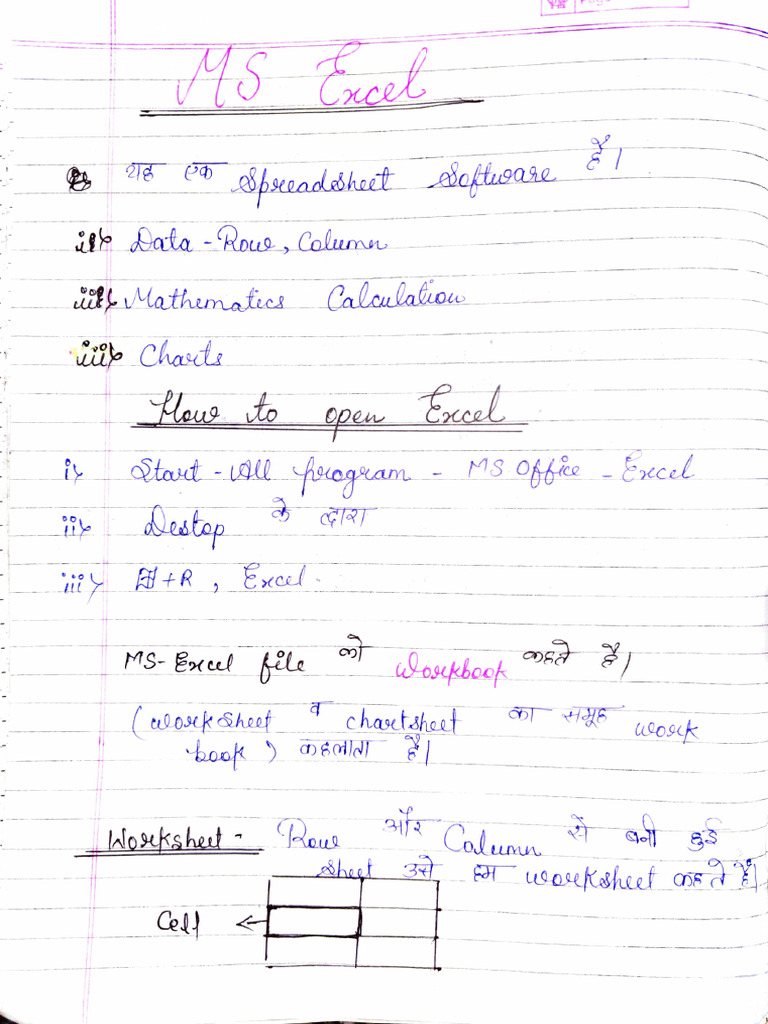 MS Excel
यह एक Spreadsheet Software है।
ii> Data - Row, Column
iii> Mathematics Calculation
iiii> Charts
How to open Excel
i> Start - All program - MS Office - Excel
ii> Destop के द्वारा
iii> ⊞+R, Excel.
MS-Excel file को Workbook कहते है।
(worksheet व chartsheet का समूह work
book) कहलाता है।
Worksheet - Row और Column से बनी हुई
sheet उसे हम worksheet कहते हैं।
Cell ←